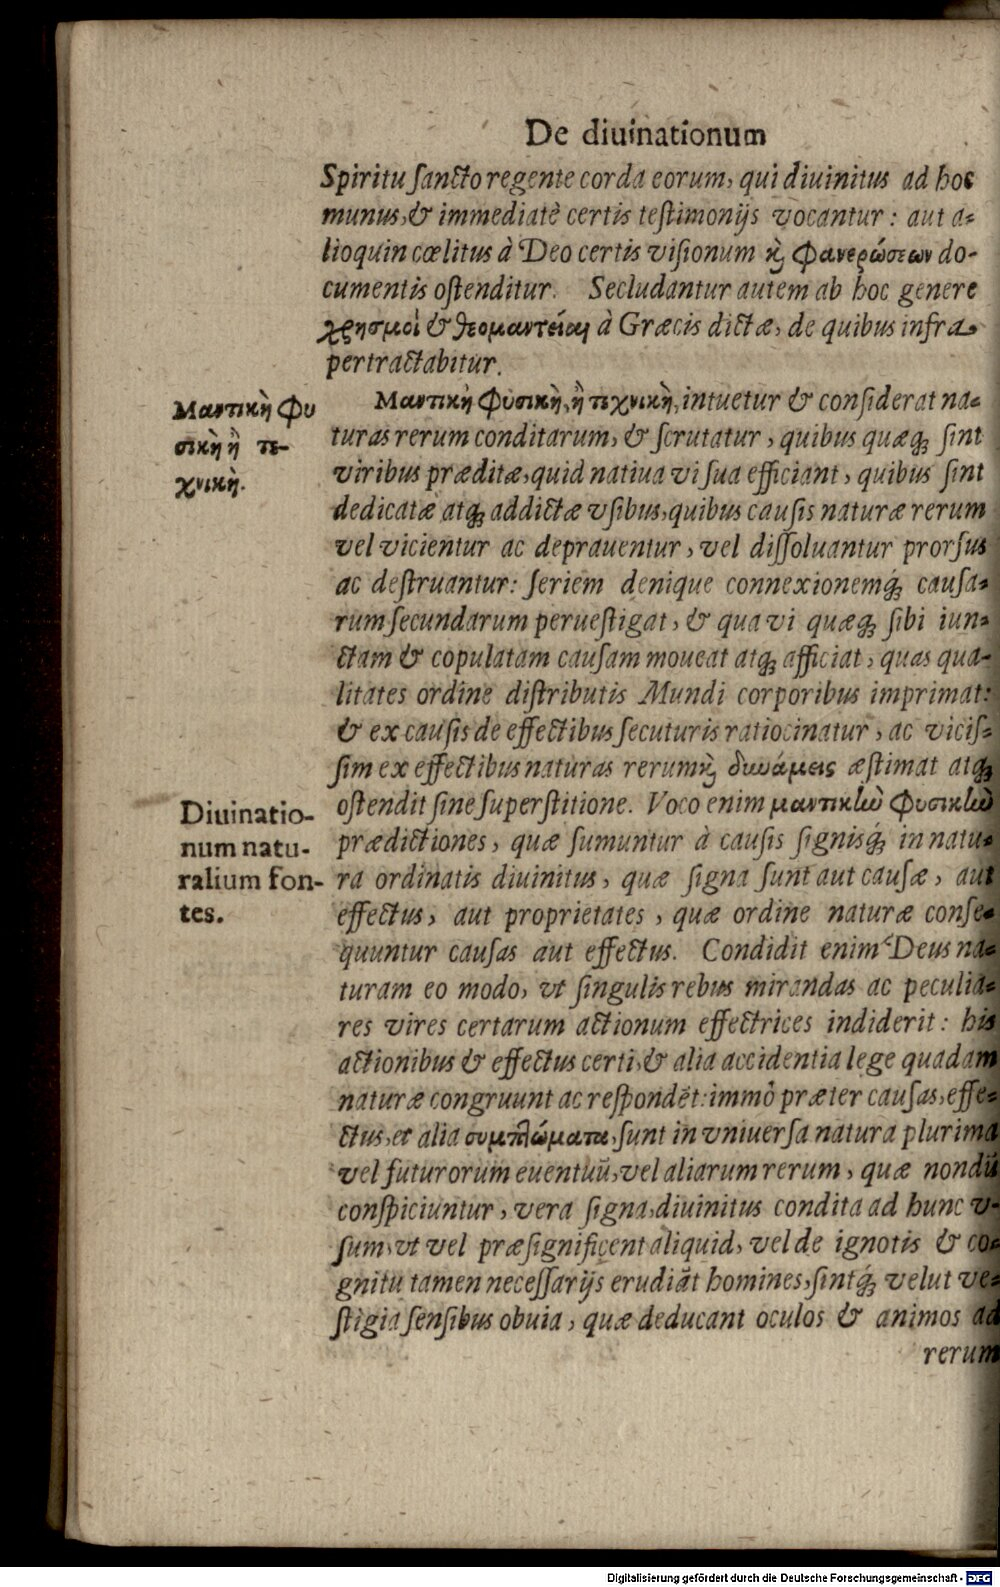 De diuinationum
Spiritu ſancto regente corda eorum, qui diuinitus ad hoc
munus, & immediatè certis teſtimonijs vocantur: aut a-
lioquin cœlitus à Deo certis viſionum ϗ φανερώσεων do-
cumentis oſtenditur. Secludantur autem ab hoc genere
χρησμοὶ & θεομαντεῖαι à Græcis dictæ, de quibus infra
pertractabitur.
Μαντικὴ Φυ
σικὴ ἢ τε-
χνικὴ.
Μαντικὴ Φυσικὴ, ἢ τεχνικὴ, intuetur & conſiderat na-
turas rerum conditarum, & ſcrutatur, quibus quæq; ſint
viribus præditæ, quid natiua vi ſua efficiant, quibus ſint
dedicatæ atq; addictæ vſibus, quibus cauſis naturæ rerum
vel vicientur ac deprauentur, vel diſſoluantur prorſus
ac deſtruantur: ſeriem denique connexionemq́; cauſa-
rum ſecundarum perueſtigat, & qua vi quæq; ſibi iun-
ctam & copulatam cauſam moueat atq; afficiat, quas qua-
litates ordine diſtributis Mundi corporibus imprimat:
& ex cauſis de effectibus ſecuturis ratiocinatur, ac viciſ-
ſim ex effectibus naturas rerum ϗ δυνάμεις æſtimat atq;
oſtendit ſine ſuperſtitione. Voco enim μαντικὴν Φυσικὴν
Diuinatio-
num natu-
ralium fon-
tes.
prædictiones, quæ ſumuntur à cauſis ſignisq́; in natu-
ra ordinatis diuinitus, quæ ſigna ſunt aut cauſæ, aut
effectus, aut proprietates, quæ ordine naturæ conſe-
quuntur cauſas aut effectus. Condidit enim Deus na-
turam eo modo, vt ſingulis rebus mirandas ac peculia-
res vires certarum actionum effectrices indiderit: his
actionibus & effectus certi, & alia accidentia lege quadam
naturæ congruunt ac reſpondẽt: immò præter cauſas, effe-
ctus, et alia συμπτώματα, ſunt in vniuerſa natura plurima
vel futurorum euentuũ, vel aliarum rerum, quæ nondũ
conſpiciuntur, vera ſigna, diuinitus condita ad hunc v-
ſum, vt vel præſignificent aliquid, vel de ignotis & co-
gnitu tamen neceſſarijs erudiãt homines, ſintq́; velut ve-
ſtigia ſenſibus obuia, quæ deducant oculos & animos ad
rerum
Digitalisierung gefördert durch die Deutsche Forschungsgemeinschaft - DFG